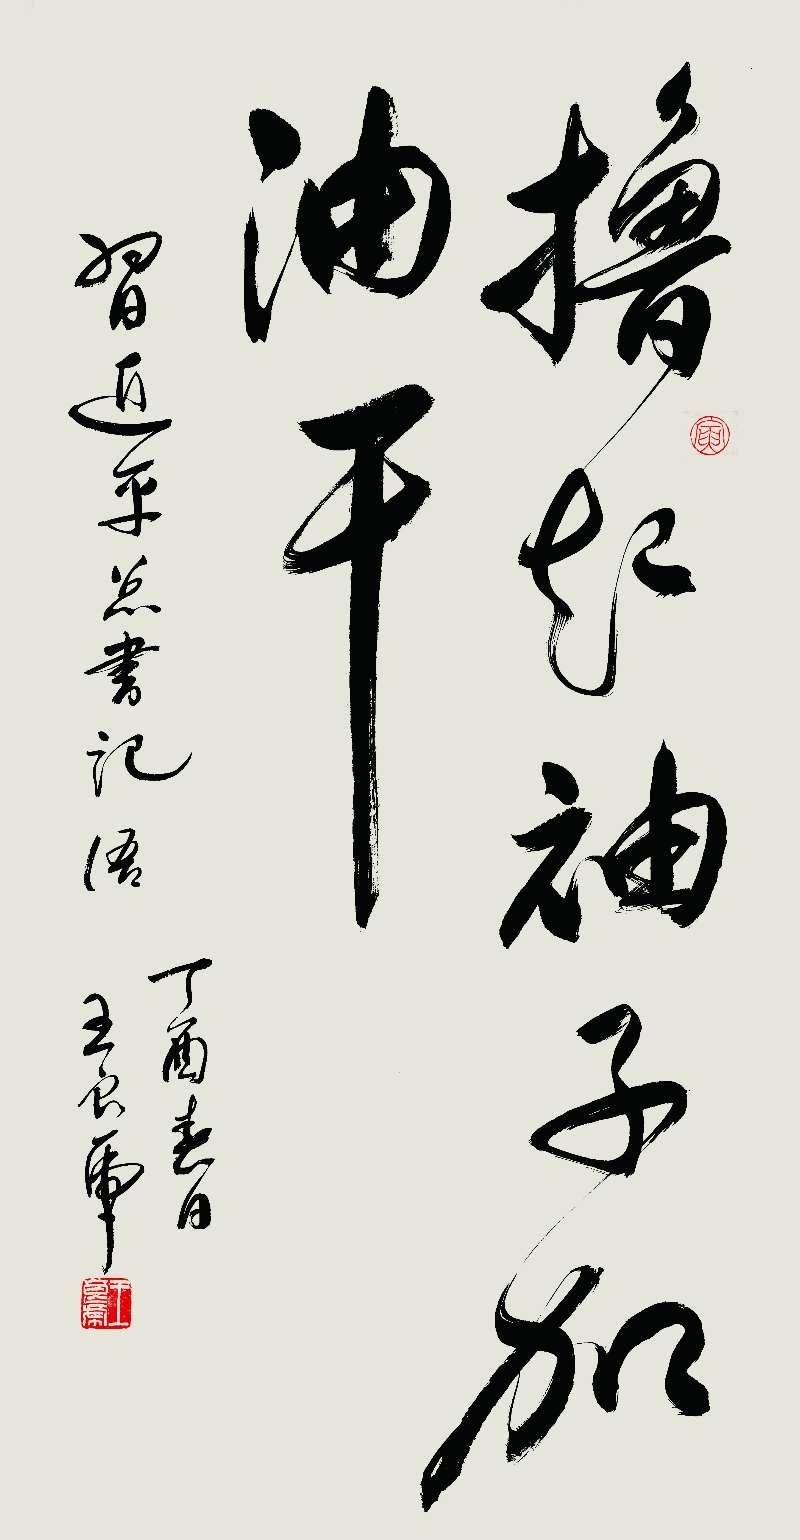 撸起袖子加
油干
習近平总書记语
丁酉春日
王良虎